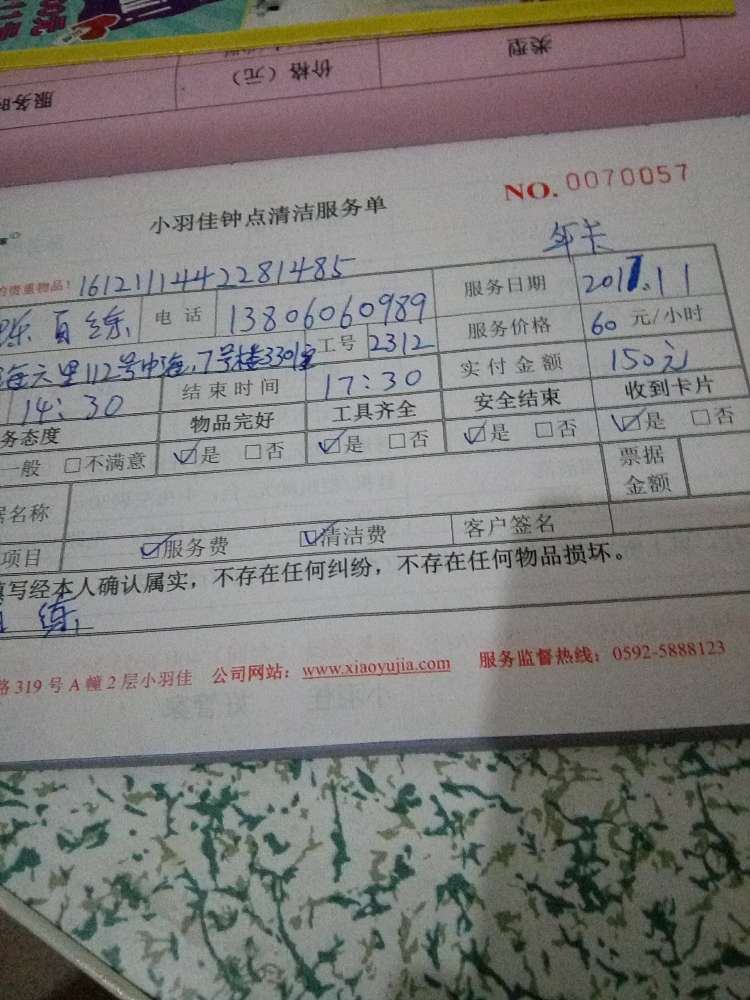 类型
价格（元）
服务时
NO. 0070057
小羽佳钟点清洁服务单
年卡
的贵重物品！ 1612111442281485
百练 电话 13806060989 服务日期 2017.1.1
六里112号中海,7号楼3301室 工号 2312 服务价格 60 元/小时
14:30 结束时间 17:30 实付金额 150元
务态度 物品完好 工具齐全 安全结束 收到卡片
一般 □不满意 ☑是 □否 ☑是 □否 ☑是 □否 ☑是 □否
据名称 票据金额
项目 ☑服务费 ☑清洁费 客户签名
填写经本人确认属实，不存在任何纠纷，不存在任何物品损坏。
练
路319号A幢2层小羽佳 公司网站：www.xiaoyujia.com 服务监督热线：0592-5888123